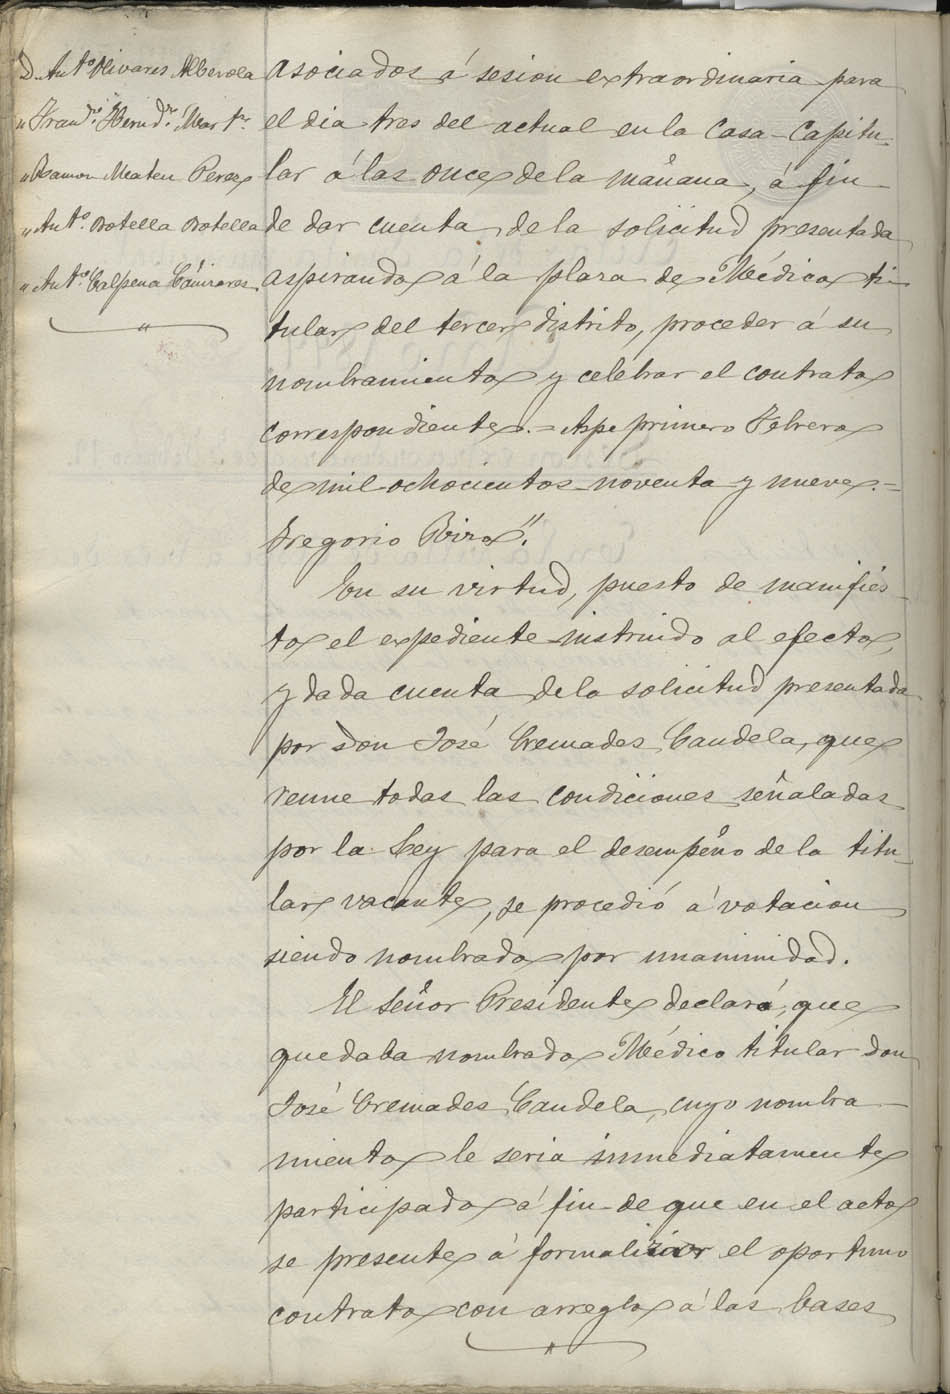 D. Ant.º Olivares Alberola
" Fran.co Hern.dez Mart.z
" Ramon Mateu Perez
" Ant.º Botella Botella
" Ant.º Calpena Cañizares
asociados á sesion extraordinaria para
el dia tres del actual en la Casa-Capitu-
lar á las once de la mañana, á fin
de dar cuenta de la solicitud presentada
aspirando á la plaza de Médico ti-
tular del tercer distrito, proceder á su
nombramiento y celebrar el contrato
correspondiente.= Aspe primero Febrero
de mil ochocientos noventa y nueve.=
Gregorio Rizo".
En su virtud, puesto de manifies-
to el expediente instruido al efecto,
y dada cuenta de la solicitud presentada
por Don José Cremades Candela, que
reune todas las condiciones señaladas
por la Ley para el desempeño de la titu-
lar vacante, se procedió á votacion
siendo nombrado por unanimidad.
El Señor Presidente declaró, que
quedaba nombrado Médico titular don
José Cremades Candela, cuyo nombra-
miento le seria inmediatamente
participado á fin de que en el acto
se presente á formalizar el oportuno
contrato con arreglo á las bases